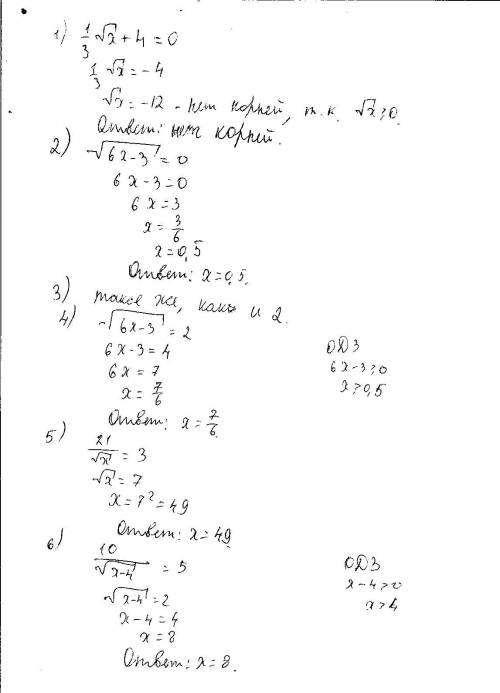 1) 1/3 √x + 4 = 0
1/3 √x = -4
√x = -12 - нет корней, т.к. √x ≥ 0.
Ответ: нет корней.
2) √(6x-3) = 0
6x-3=0
6x=3
x = 3/6
x=0,5
Ответ: x=0,5.
3) такое же, как и 2.
4) √(6x-3) = 2
6x-3=4
6x=7
x = 7/6
ОДЗ
6x-3≥0
x≥0,5
Ответ: x = 7/6.
5) 21/√x = 3
√x = 7
x = 7² = 49
Ответ: x=49
6) 10/√(x-4) = 5
√(x-4) = 2
x-4=4
x=8
ОДЗ
x-4>0
x>4
Ответ: x=8.